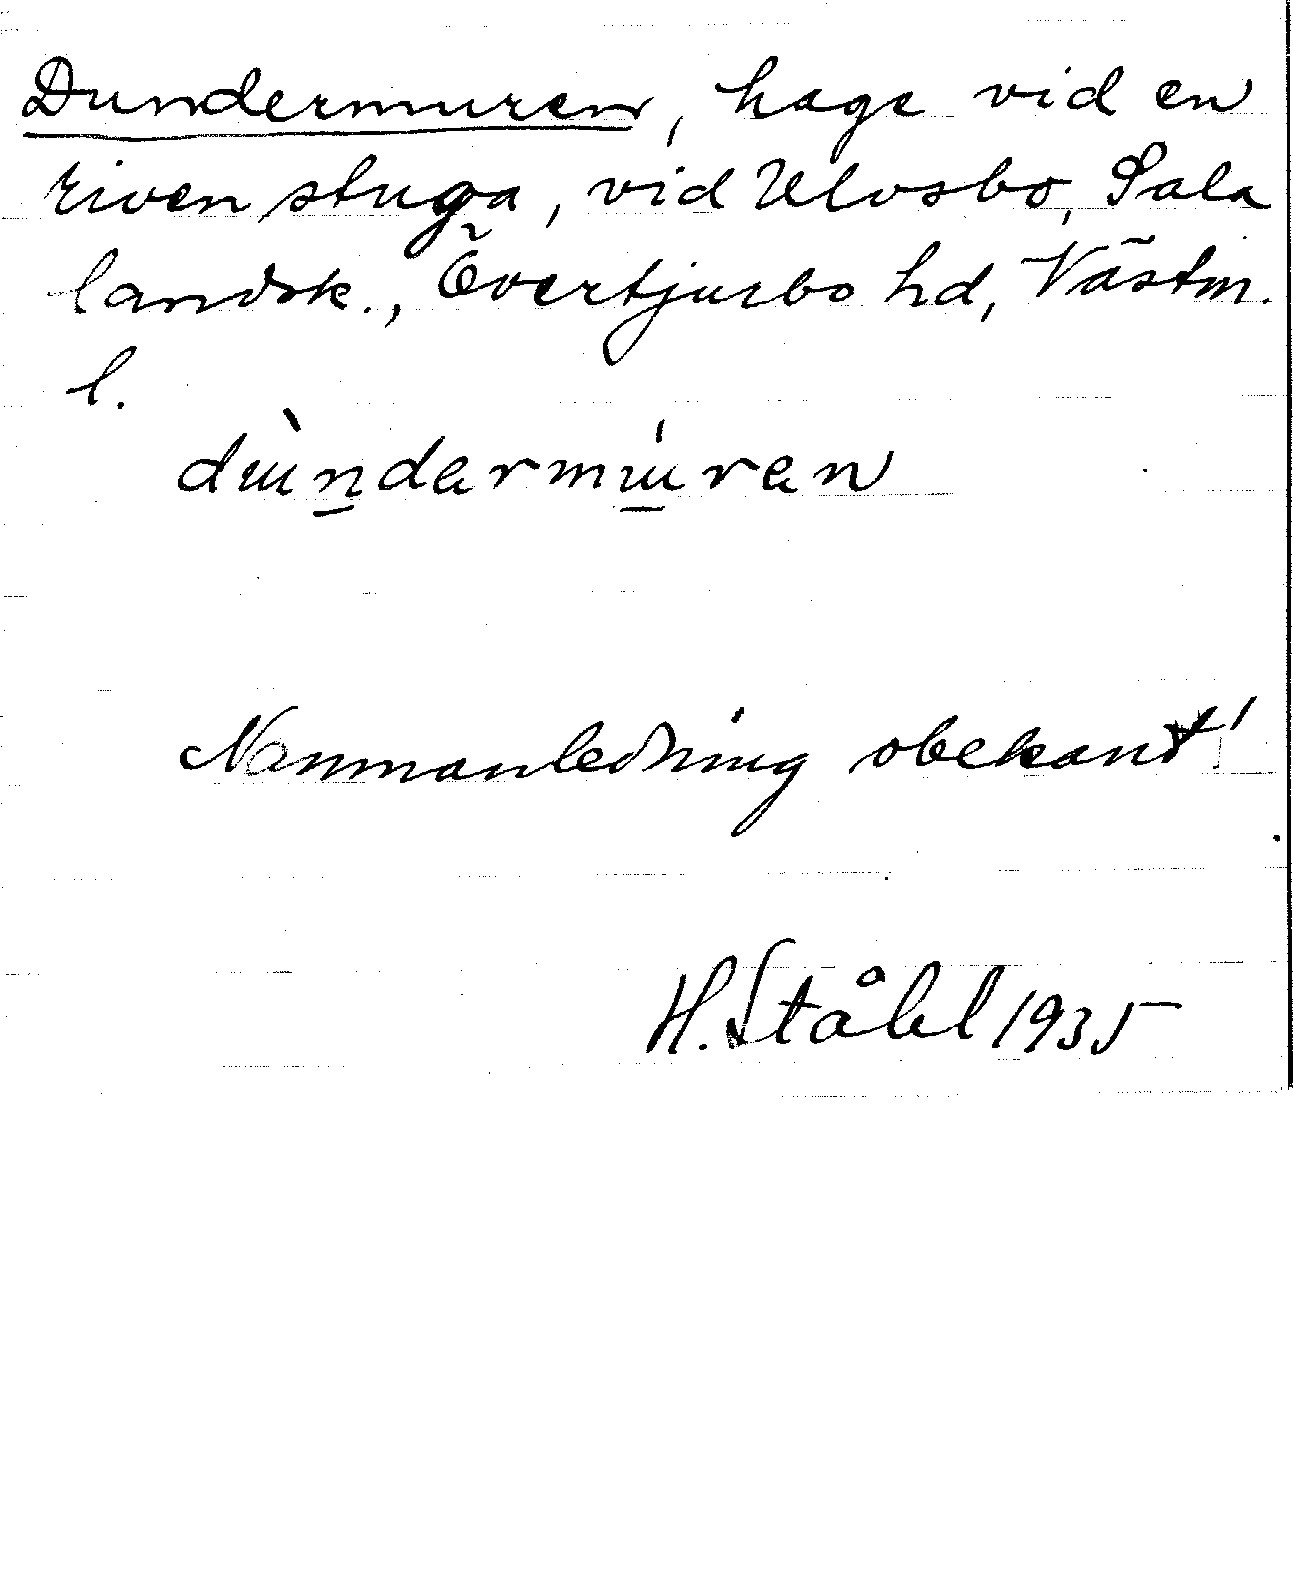 Dundermuren, hage vid en
riven stuga, vid Ulvsbo, Sala
landsk., Övertjurbo hd, Västm.
l.
dùndermúren
Namnanledning obekant!
H. Ståhl 1935